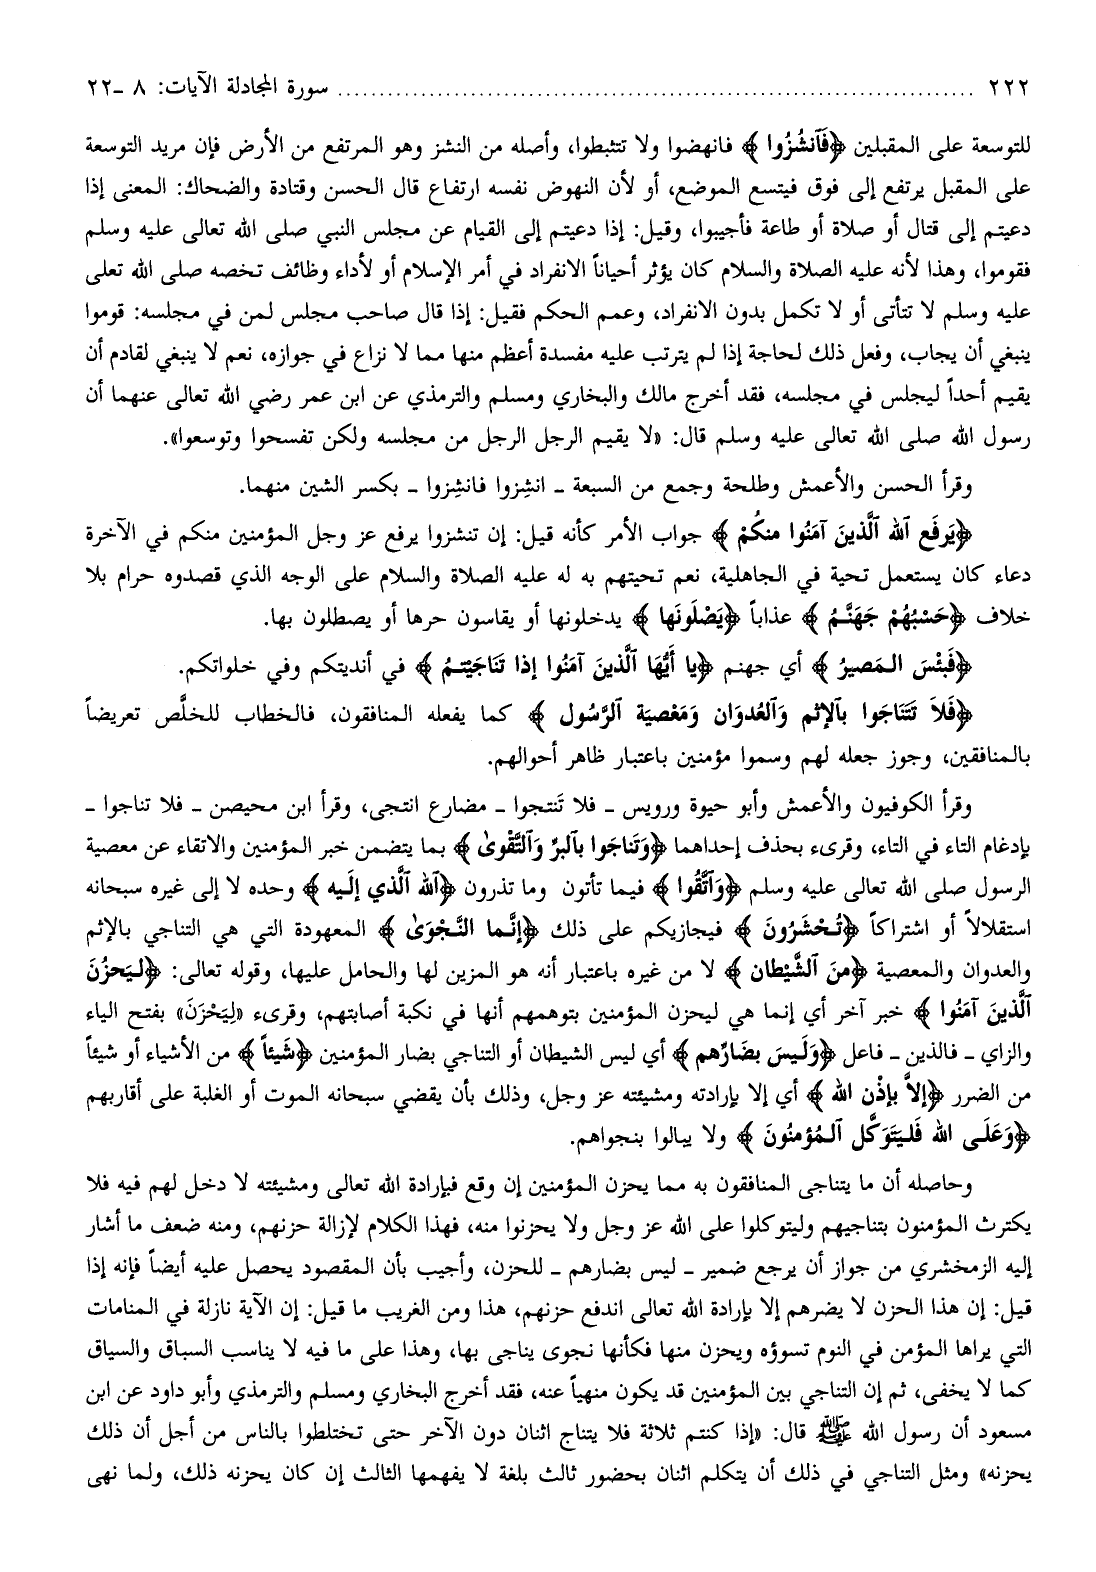 ٢٢٢ ........................................................................ سورة المجادلة الآيات: ٨ ـ٢٢
للتوسعة على المقبلين ﴿فَٱنشُزُوا﴾ فانهضوا ولا تتثبطوا، وأصله من النشز وهو المرتفع من الأرض فإن مريد التوسعة
على المقبل يرتفع إلى فوق فيتسع الموضع، أو لأن النهوض نفسه ارتفاع قال الحسن وقتادة والضحاك: المعنى إذا
دعيتم إلى قتال أو صلاة أو طاعة فأجيبوا، وقيل: إذا دعيتم إلى القيام عن مجلس النبي صلى الله تعالى عليه وسلم
فقوموا، وهذا لأنه عليه الصلاة والسلام كان يؤثر أحياناً الانفراد في أمر الإسلام أو لأداء وظائف تخصه صلى الله تعلى
عليه وسلم لا تتأتى أو لا تكمل بدون الانفراد، وعمم الحكم فقيل: إذا قال صاحب مجلس لمن في مجلسه: قوموا
ينبغي أن يجاب، وفعل ذلك لحاجة إذا لم يترتب عليه مفسدة أعظم منها مما لا نزاع في جوازه، نعم لا ينبغي لقادم أن
يقيم أحداً ليجلس في مجلسه، فقد أخرج مالك والبخاري ومسلم والترمذي عن ابن عمر رضي الله تعالى عنهما أن
رسول الله صلى الله تعالى عليه وسلم قال: «لا يقيم الرجل الرجل من مجلسه ولكن تفسحوا وتوسعوا».
وقرأ الحسن والأعمش وطلحة وجمع من السبعة ـ انشِزوا فانشِزوا ـ بكسر الشين منهما.
﴿يَرفَعِ ٱلله ٱلَّذينَ آمَنُوا منكُمْ﴾ جواب الأمر كأنه قيل: إن تنشزوا يرفع عز وجل المؤمنين منكم في الآخرة
دعاء كان يستعمل تحية في الجاهلية، نعم تحيتهم به له عليه الصلاة والسلام على الوجه الذي قصدوه حرام بلا
خلاف ﴿حَسْبُهُمْ جَهَنَّمُ﴾ عذاباً ﴿يَصْلَونَها﴾ يدخلونها أو يقاسون حرها أو يصطلون بها.
﴿فَبئْسَ المَصيرُ﴾ أي جهنم ﴿يا أَيُّهَا ٱلَّذينَ آمَنُوا إذا تَناجَيْتمُ﴾ في أنديتكم وفي خلواتكم.
﴿فَلاَ تَتَنَاجَوا بٱلإثم وَٱلعُدوَان وَمَعْصيَة ٱلرَّسُول﴾ كما يفعله المنافقون، فالخطاب للخلَّص تعريضاً
بالمنافقين، وجوز جعله لهم وسموا مؤمنين باعتبار ظاهر أحوالهم.
وقرأ الكوفيون والأعمش وأبو حيوة ورويس ـ فلا تَنتجوا ـ مضارع انتجى، وقرأ ابن محيصن ـ فلا تناجوا ـ
بإدغام التاء في التاء، وقرىء بحذف إحداهما ﴿وَتَناجَوا بٱلبرِّ وَٱلتَّقْوىٰ﴾ بما يتضمن خبر المؤمنين والاتقاء عن معصية
الرسول صلى الله تعالى عليه وسلم ﴿وَٱتَّقُوا﴾ فيما تأتون وما تذرون ﴿ٱلله ٱلَّذي إلَيه﴾ وحده لا إلى غيره سبحانه
استقلالاً أو اشتراكاً ﴿تُحْشَرُونَ﴾ فيجازيكم على ذلك ﴿إنَّما النَّجْوَىٰ﴾ المعهودة التي هي التناجي بالإثم
والعدوان والمعصية ﴿منَ ٱلشَّيْطان﴾ لا من غيره باعتبار أنه هو المزين لها والحامل عليها، وقوله تعالى: ﴿ليَحزُنَ
ٱلَّذينَ آمَنُوا﴾ خبر آخر أي إنما هي ليحزن المؤمنين بتوهمهم أنها في نكبة أصابتهم، وقرىء «لِيَحْزَنَ» بفتح الياء
والزاي ـ فالذين ـ فاعل ﴿وَلَيسَ بضَارِّهم﴾ أي ليس الشيطان أو التناجي بضار المؤمنين ﴿شَيئاً﴾ من الأشياء أو شيئاً
من الضرر ﴿إلاَّ بإذْن الله﴾ أي إلا بإرادته ومشيئته عز وجل، وذلك بأن يقضي سبحانه الموت أو الغلبة على أقاربهم
﴿وَعَلَى الله فَليَتَوَكَّل ٱلمُؤمنُونَ﴾ ولا يبالوا بنجواهم.
وحاصله أن ما يتناجى المنافقون به مما يحزن المؤمنين إن وقع فبإرادة الله تعالى ومشيئته لا دخل لهم فيه فلا
يكترث المؤمنون بتناجيهم وليتوكلوا على الله عز وجل ولا يحزنوا منه، فهذا الكلام لإزالة حزنهم، ومنه ضعف ما أشار
إليه الزمخشري من جواز أن يرجع ضمير ـ ليس بضارهم ـ للحزن، وأجيب بأن المقصود يحصل عليه أيضاً فإنه إذا
قيل: إن هذا الحزن لا يضرهم إلا بإرادة الله تعالى اندفع حزنهم، هذا ومن الغريب ما قيل: إن الآية نازلة في المنامات
التي يراها المؤمن في النوم تسوؤه ويحزن منها فكأنها نجوى يناجى بها، وهذا على ما فيه لا يناسب السباق والسياق
كما لا يخفى، ثم إن التناجي بين المؤمنين قد يكون منهياً عنه، فقد أخرج البخاري ومسلم والترمذي وأبو داود عن ابن
مسعود أن رسول الله ﷺ قال: «إذا كنتم ثلاثة فلا يتناج اثنان دون الآخر حتى تختلطوا بالناس من أجل أن ذلك
يحزنه» ومثل التناجي في ذلك أن يتكلم اثنان بحضور ثالث بلغة لا يفهمها الثالث إن كان يحزنه ذلك، ولما نهى